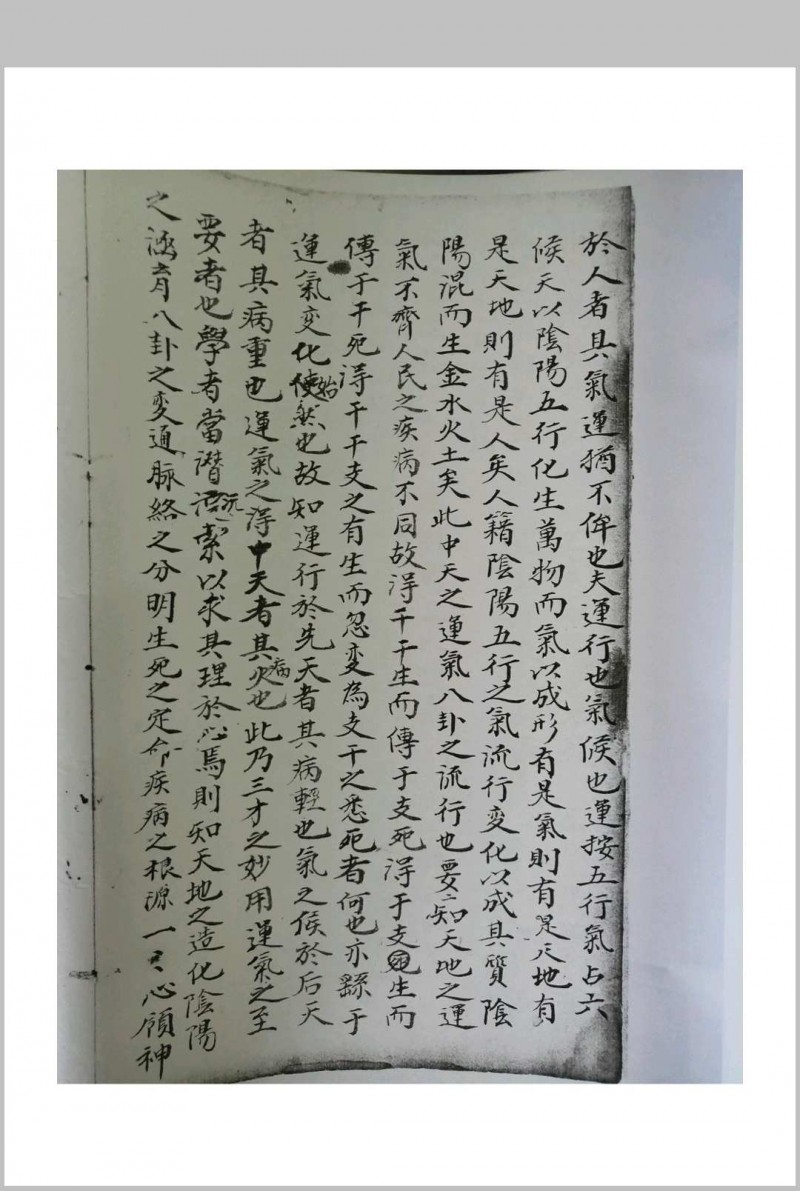 於人者具氣運猶不侔也夫運行也氣候也運按五行氣占六
候天以陰陽五行化生萬物而氣以成形有是氣則有是天地有
是天地則有是人矣人籍陰陽五行之氣流行变化以成其質陰
陽混而生金水火土矣此中天之運氣八卦之流行也要〻知天地之運
氣不齊人民之疾病不同故得干干生而傳于支死得于支生而
傳于干死得干干支之有生而忽变為支干之悉死者何也亦繇于
運氣变化使始然也故知運行於先天者其病輕也氣之候於后天
者其病重也運氣之得中天者其病火也此乃三才之妙用運氣之至
要者也學者當潛沉索以求其理於心焉則知天地之造化陰陽
之涵育八卦之变通脉絡之分明生死之定命疾病之根源一〻心領神